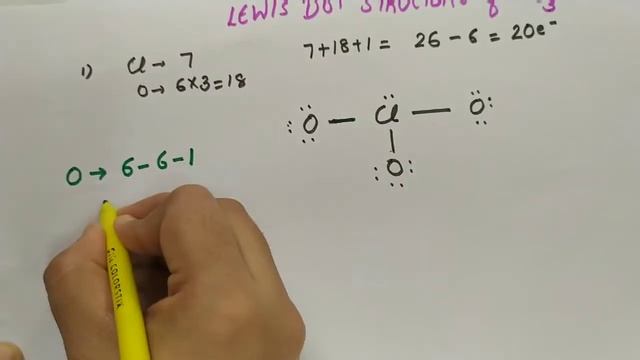 LEWIS DOT STRUCTURE of
1) Cl → 7
O → 6×3=18
7+18+1 = 26-6 = 20e⁻
:O — Cl — O:
|
:O:
O → 6-6-1
COLORSTIX